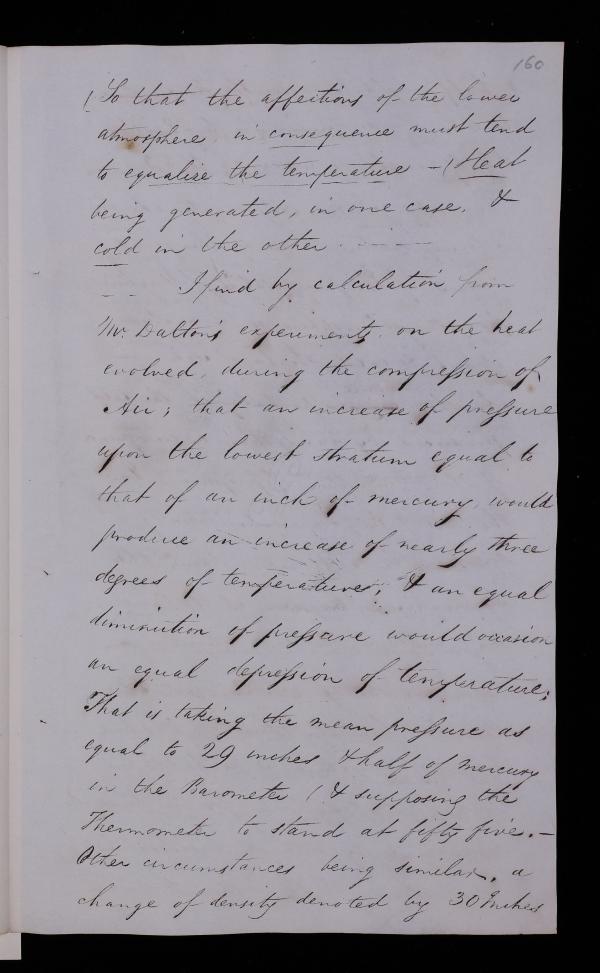 160
(So that the affections of the lower
atmosphere in consequence must tend
to equalise the temperature – (Heat
being generated, in one case. &
cold in the other. - - —
– – I find by calculation from
Mr. Dalton's experiments. on the heat
evolved, during the compression of
Air; that an increase of pressure
upon the lowest stratum equal to
that of an inch of mercury, would
produce an increase of nearly three
degrees of temperature; & an equal
diminution of pressure would occasion
an equal depression of temperature;
That is taking the mean pressure as
equal to 29 inches & half of mercury
in the Barometer (& supposing the
Thermometer to stand at fifty five. –
Other circumstances being similar, a
change of density denoted by 30 Inches